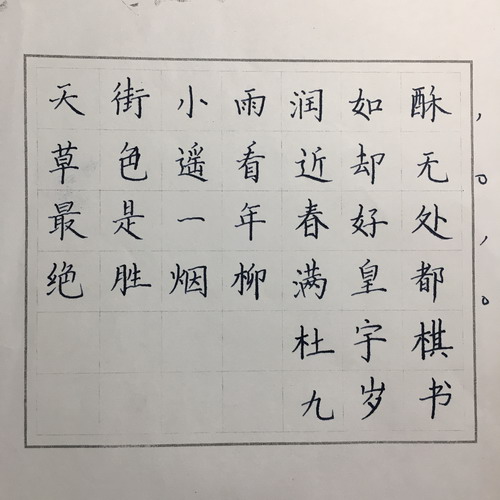 天街小雨润如酥，
草色遥看近却无。
最是一年春好处，
绝胜烟柳满皇都。
杜宇棋
九岁书